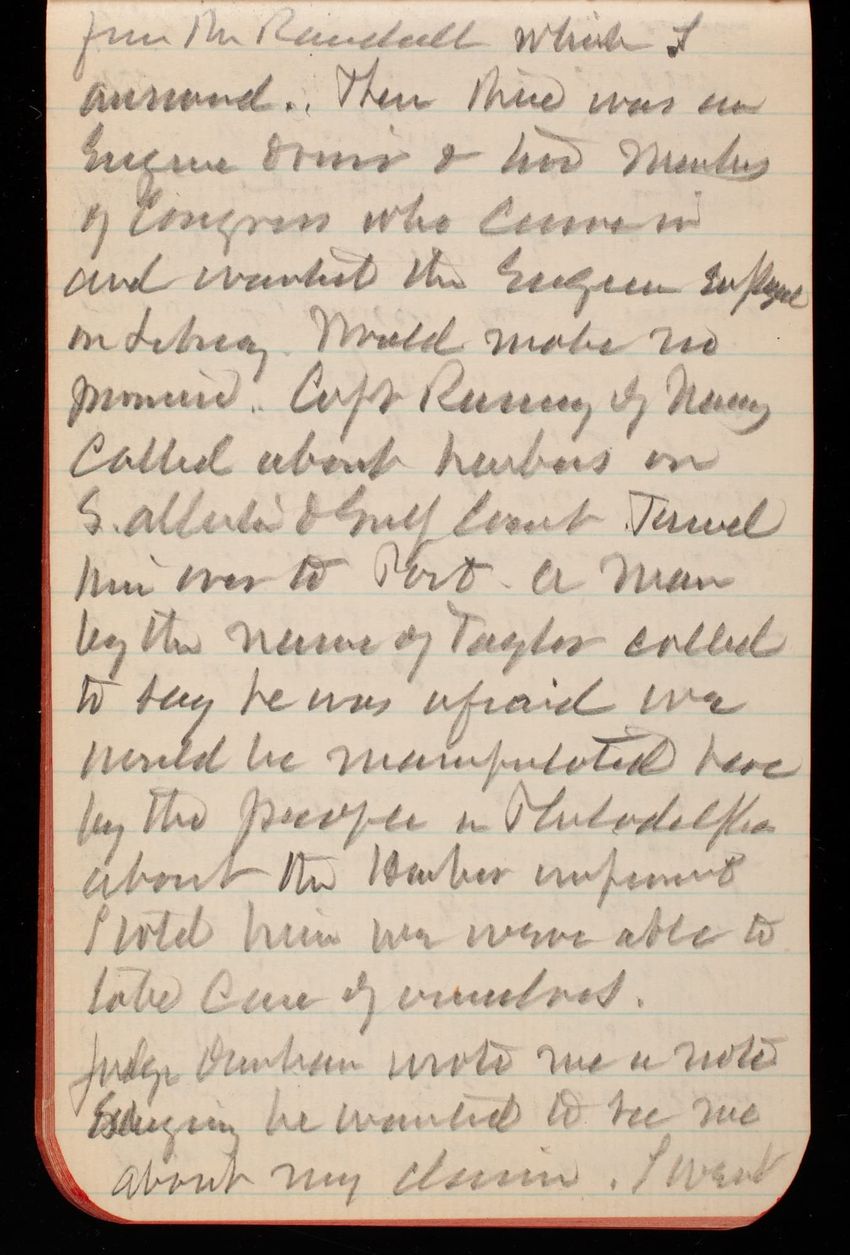 from Mr Randall which I
answered.. Then there was an
Engine Davis & two Members
of Congress who came in
and wanted the Engineer employed
on Library. Would make no
promise. Capt Ramsey of Navy
called about harbors on
S. Atlantic & Gulf Coast. Turned
him over to Post. A man
by the name of Taylor called
to say he was afraid we
would be manipulated here
by the people in Philadelphia
about the Harbor improvmt
I told him we were able to
take care of ourselves.
Judge Dunham wrote me a note
saying he wanted to see me
about my claim. I went